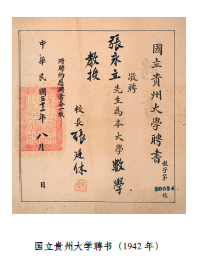 國立貴州大學聘書
教字第
號
敬聘
張永立先生為本大學數學
教授
附聘約應聘書各一紙
校長張廷休
中華民國三十一年八月 日
国立贵州大学聘书（1942年）